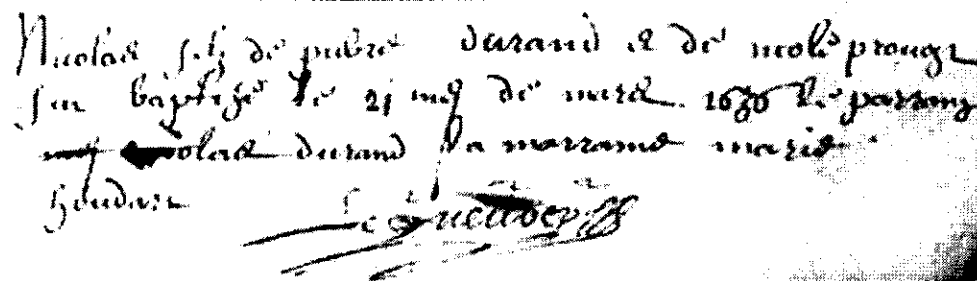 Nicolas filz de pierre durand et de nicole
fut baptizé le 21 me de mars 1636 le parrang
nicolas durand la marrainne marie
houdart